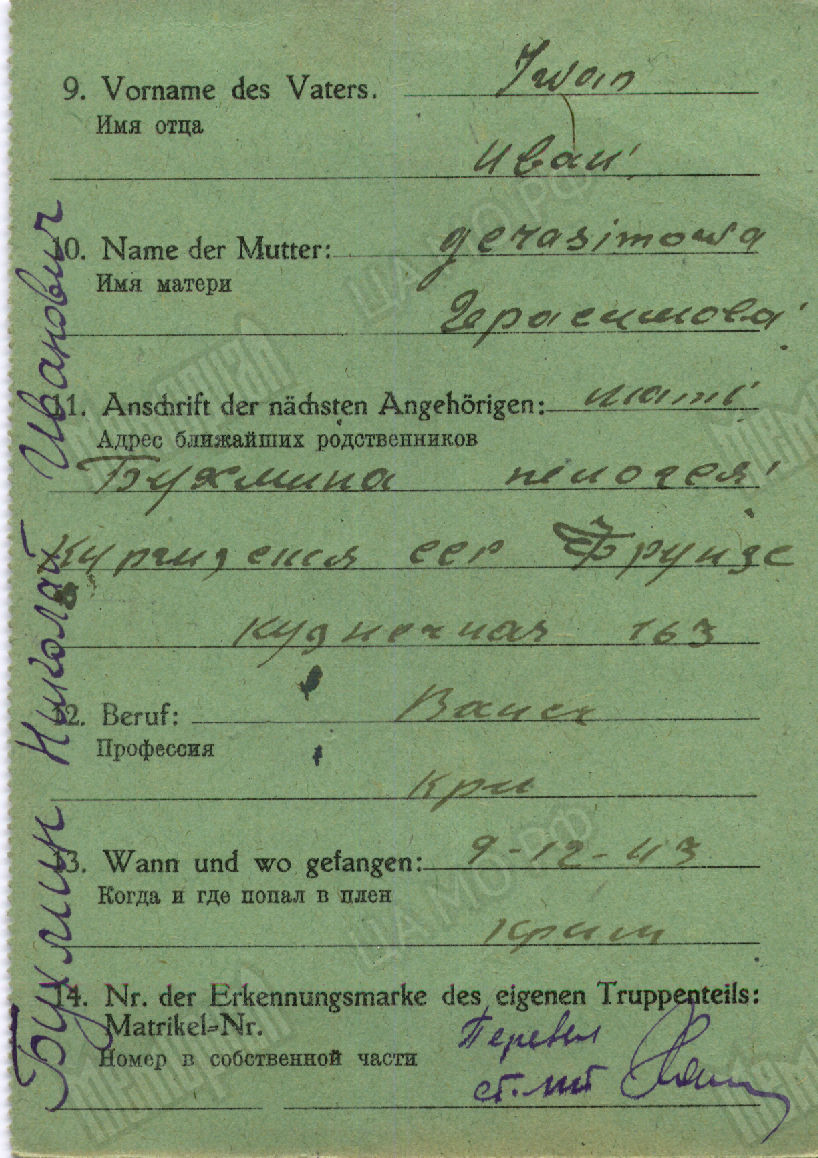 9. Vorname des Vaters. Iwan
Имя отца
Иван
10. Name der Mutter: gerasimowa
Имя матери
Герасимова
11. Anschrift der nächsten Angehörigen: мать
Адрес ближайших родственников
Бухмина
Киргизская сср Фрунзе
Кузнечная 163
12. Beruf:
Профессия
13. Wann und wo gefangen: 9-12-43
Когда и где попал в плен
Крым
14. Nr. der Erkennungsmarke des eigenen Truppenteils:
Matrikel-Nr.
Номер в собственной части
Перевел
ст. лт
Бухмин Николай Иванович
ЦАМО РФ
Мемориал
ЦАМО РФ
Мемориал